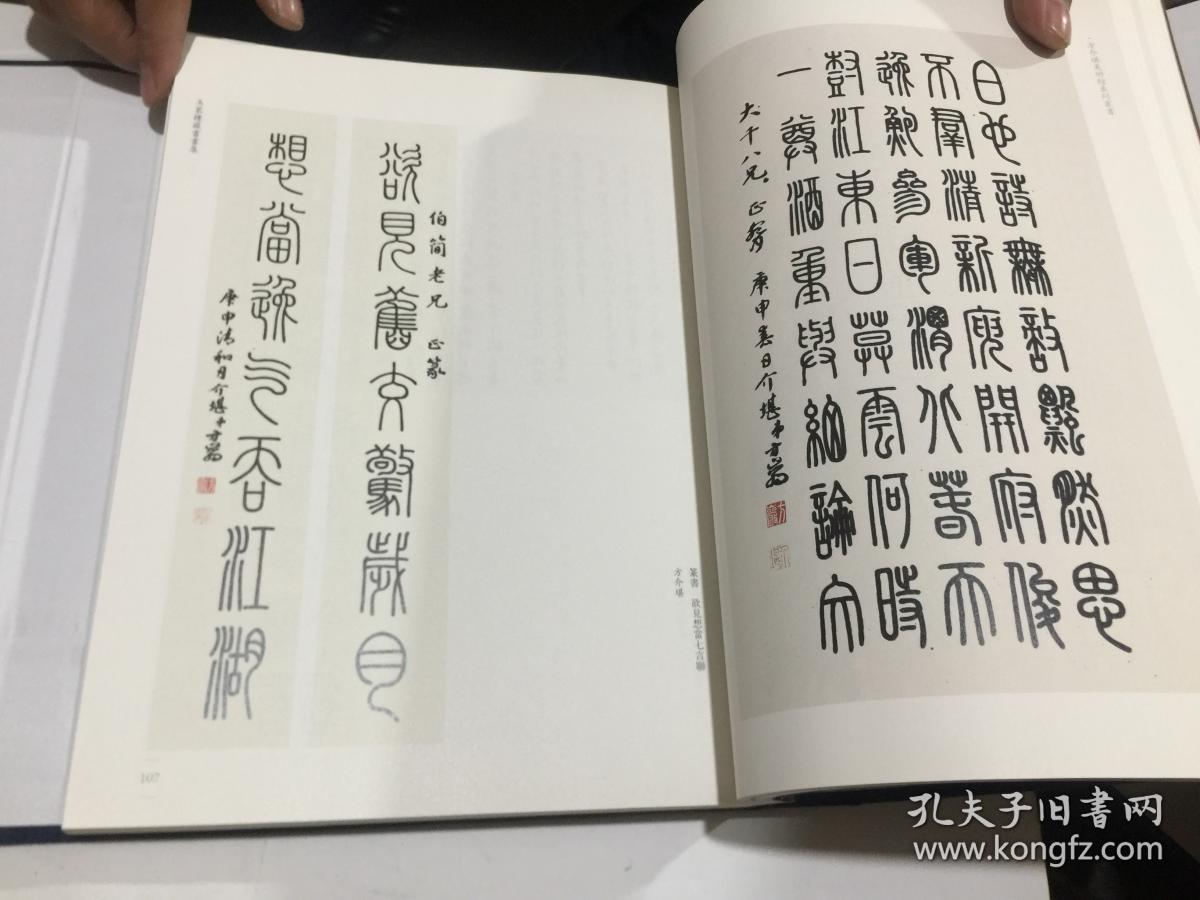 白也詩無敵飄然思
不羣清新庾開府俊
逸鮑參軍渭北春天
樹江東日暮雲何時
一尊酒重與細論文
大千八兄 正 庚申春日介堪弟方
篆書 欲見想當七言聯
方介堪
伯簡老兄 正篆
欲見舊交驚歲月
想當逸氣吞江湖
庚申清和月介堪弟方
107
孔夫子旧书网
www.kongfz.com